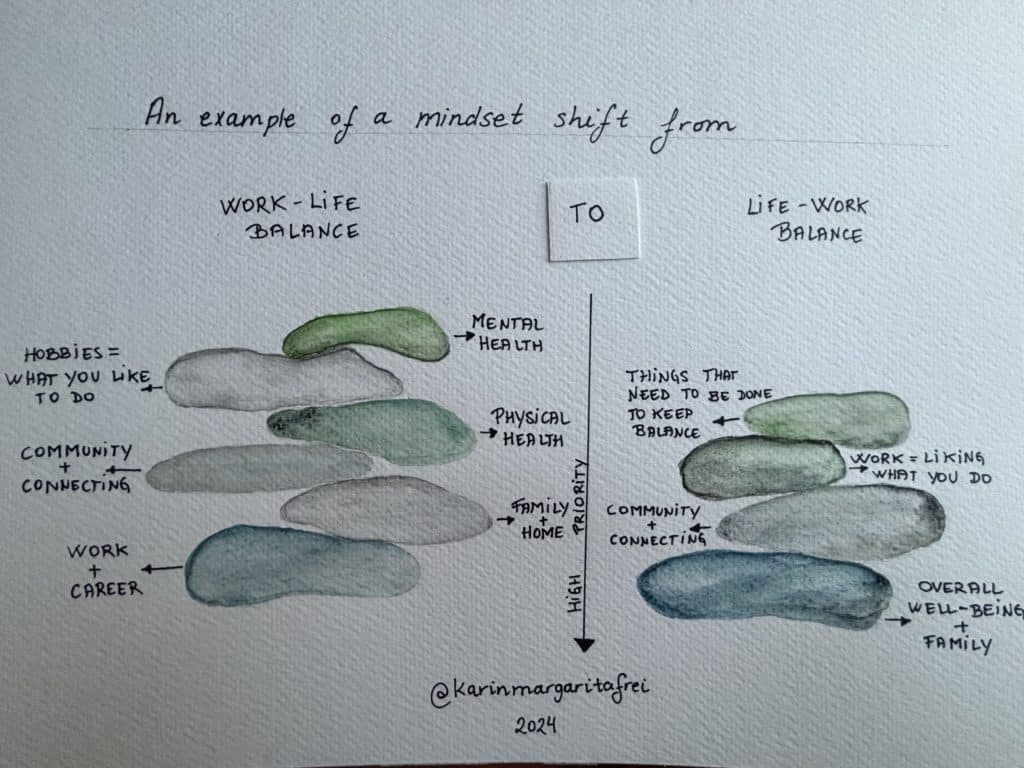 An example of a mindset shift from
WORK-LIFE
BALANCE
TO
LIFE-WORK
BALANCE
MENTAL
HEALTH
HOBBIES =
WHAT YOU LIKE
TO DO
PHYSICAL
HEALTH
COMMUNITY
+
CONNECTING
FAMILY
+
HOME
WORK
+
CAREER
HIGH PRIORITY
THINGS THAT
NEED TO BE DONE
TO KEEP
BALANCE
WORK = LIKING
WHAT YOU DO
COMMUNITY
+
CONNECTING
OVERALL
WELL-BEING
+
FAMILY
@karinmargaritafrei
2024